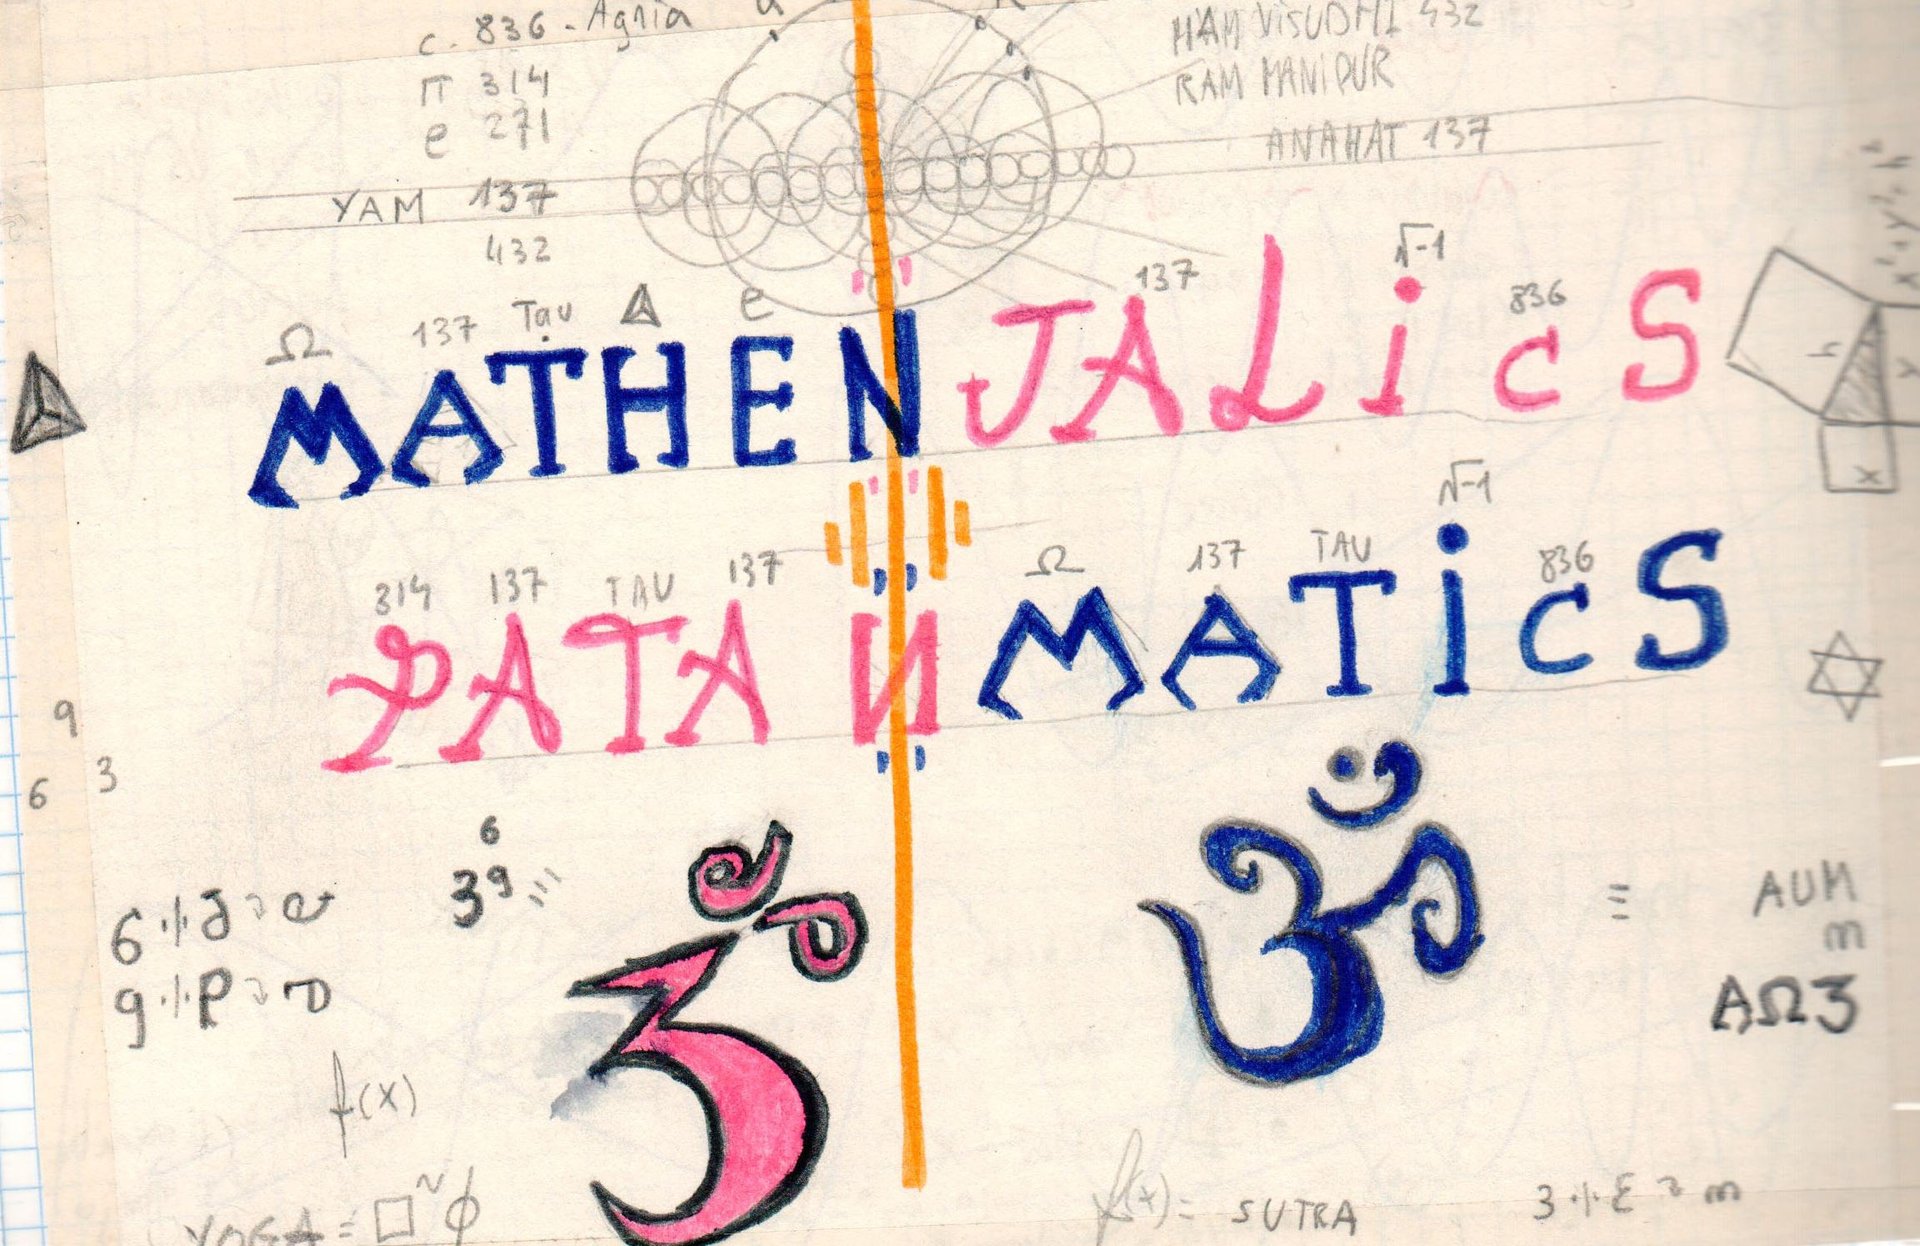 c. 836 - Agnia
π 314
e 271
YAM 137
432
HAM VISUDHI 432
RAM MANIPUR
ANAHAT 137
Ω 137 Tau e 137 √-1 836
MATHENJALiCS
314 137 TAU 137 Ω 137 TAU √-1 836
PATAИMATiCS
h
x
y
9
6 3
6
39
f(x)
YOGA = □~φ
ॐ
≡ AUM
m
AΩ3
f(x) = SUTRA